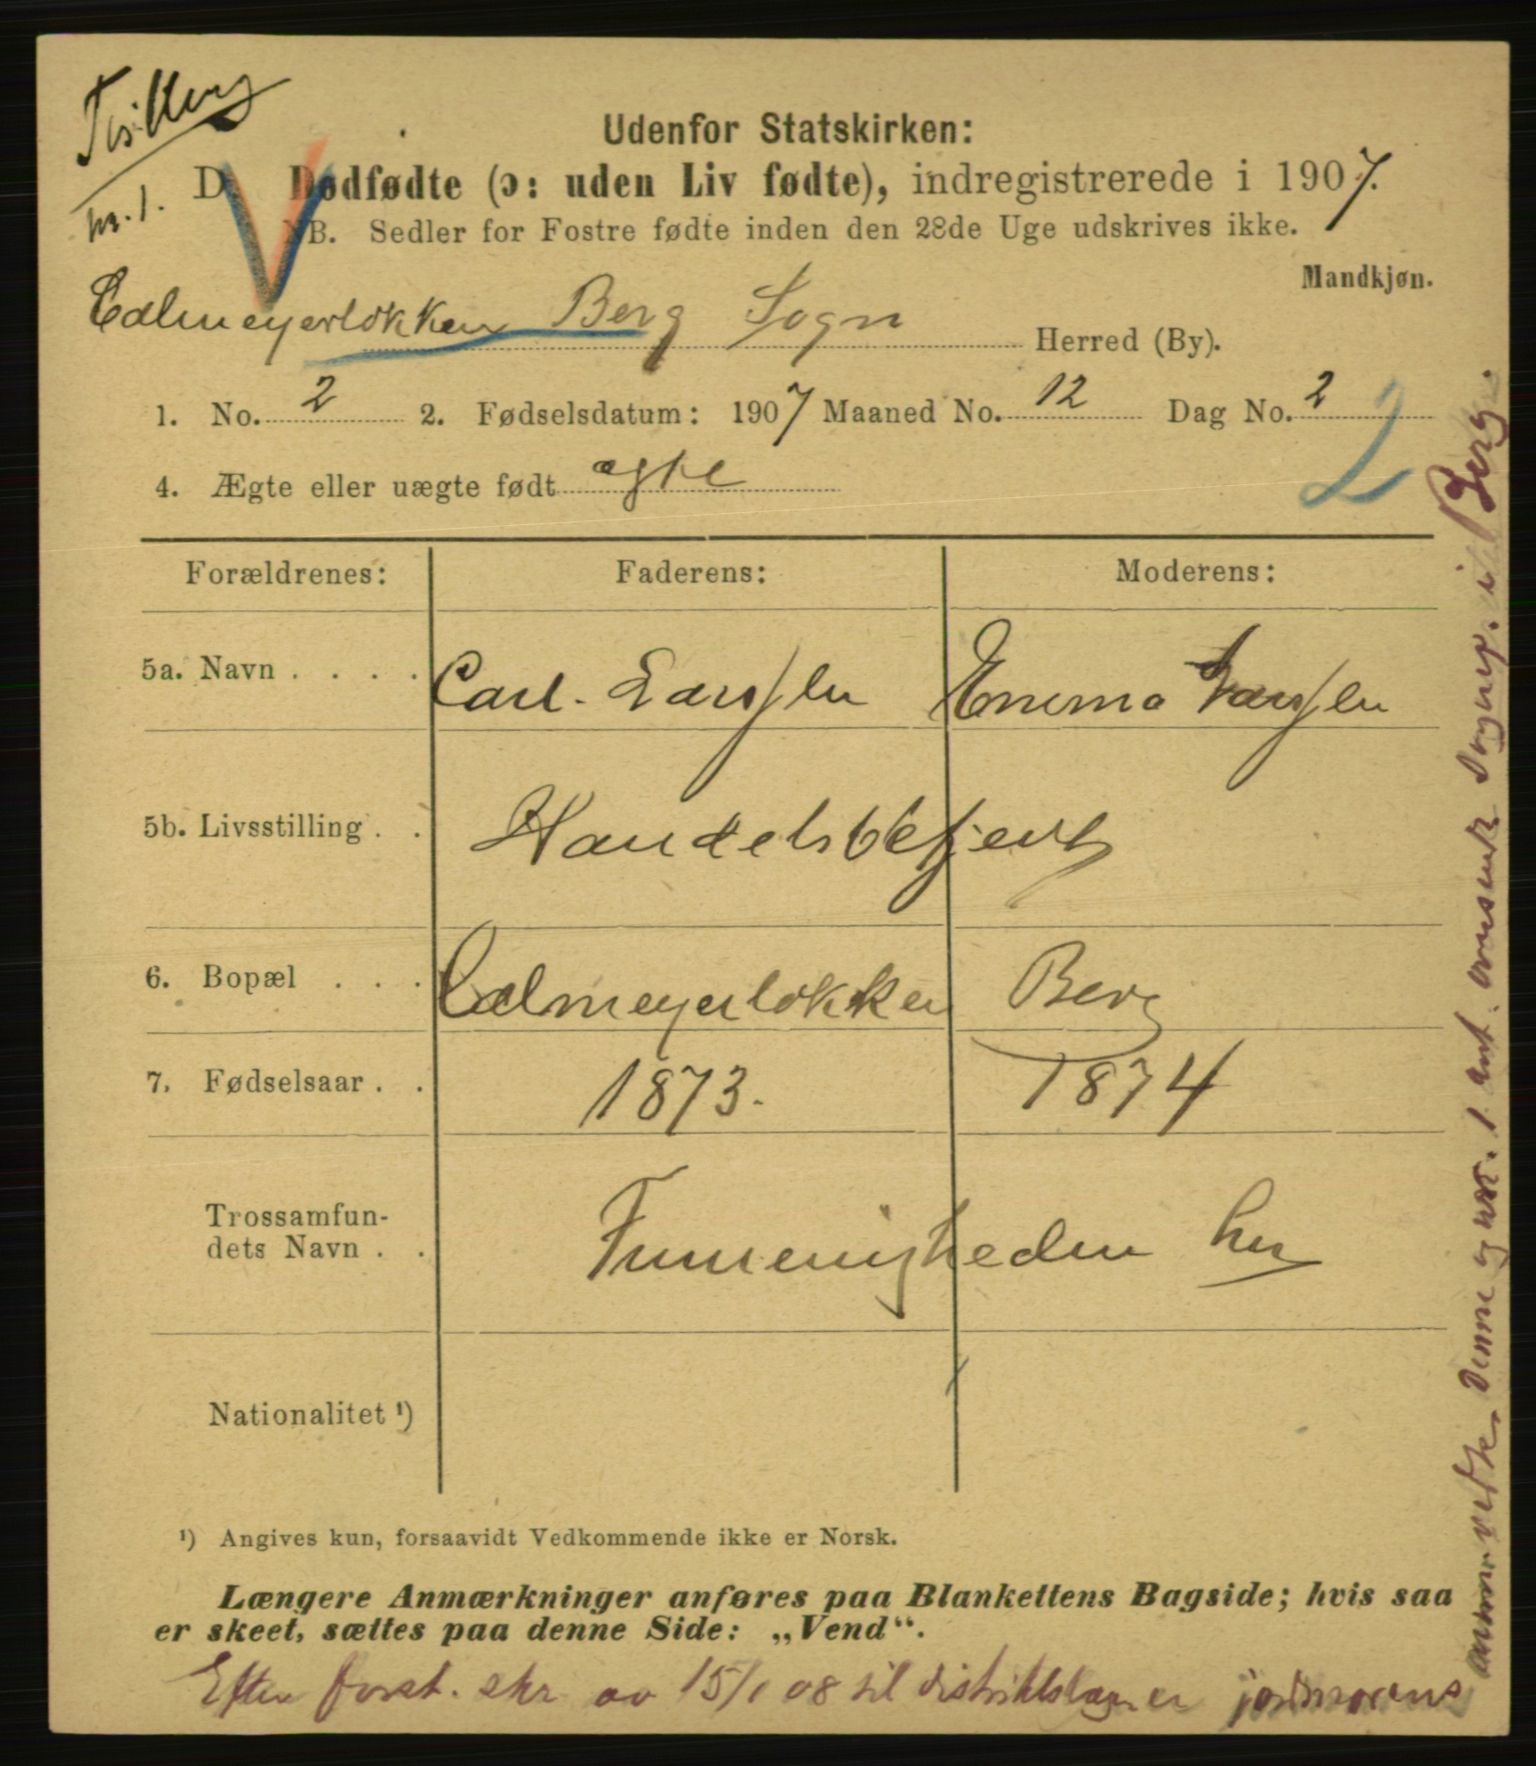 Tvilling
nr. 1.
Udenfor Statskirken:
D. Dødfødte (ɔ: uden Liv fødte), indregistrerede i 1907.
NB. Sedler for Fostre fødte inden den 28de Uge udskrives ikke.
Mandkjøn.
Colmeyerløkken Berg Sogn Herred (By).
1. No. 2 2. Fødselsdatum: 1907 Maaned No. 12 Dag No. 2
2
4. Ægte eller uægte født ægte
Forældrenes: Faderens: Moderens:
5a. Navn . . . . Carl. Larssen Emma Larssen
5b. Livsstilling . . Handelsbetjent
6. Bopæl . . . Colmeyerløkken Berg
7. Fødselsaar . . 1873. 1874
Trossamfun-
dets Navn . . Frimenigheden her
Nationalitet ¹)
¹) Angives kun, forsaavidt Vedkommende ikke er Norsk.
Længere Anmærkninger anføres paa Blankettens Bagside; hvis saa
er skeet, sættes paa denne Side: „Vend“.
Efter skr av 15/1 08 til distriktslægen er jordmorens
denne og nr. 1 ant. i Berg.